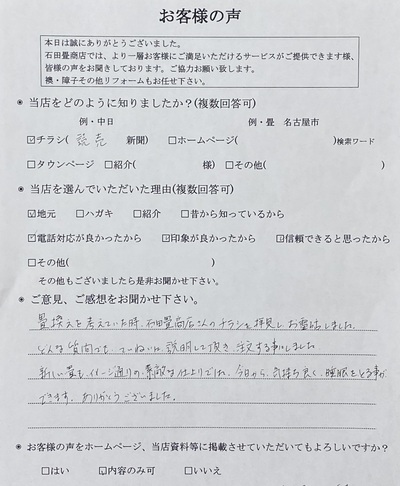 お客様の声
本日は誠にありがとうございました。
石田畳商店では、より一層お客様にご満足いただけるサービスがご提供できます様、
皆様の声をお聞きしております。ご協力お願い致します。
襖・障子その他リフォームもお任せ下さい。
◉ 当店をどのように知りましたか？(複数回答可)
例・中日 例・畳 名古屋市
☑チラシ( 読売 新聞) □ホームページ( )検索ワード
□タウンページ □紹介( 様) □その他( )
◉ 当店を選んでいただいた理由(複数回答可)
☑地元 □ハガキ □紹介 □昔から知っているから
☑電話対応が良かったから ☑印象が良かったから ☑信頼できると思ったから
□その他( )
その他もございましたら是非お聞かせ下さい。
◉ ご意見、ご感想をお聞かせ下さい。
畳換えを考えていた時、石田畳商店さんのチラシを拝見しお電話しました。
どんな質問でも、ていねいに説明して頂き、注文する事にしました
新しい畳も、イメージ通りの素敵な仕上りでた。今日から、気持ち良く、睡眠をとる事が
できます。ありがとうございました。
◉ お客様の声をホームページ、当店資料等に掲載させていただいてもよろしいですか？
□はい ☑内容のみ可 □いいえ